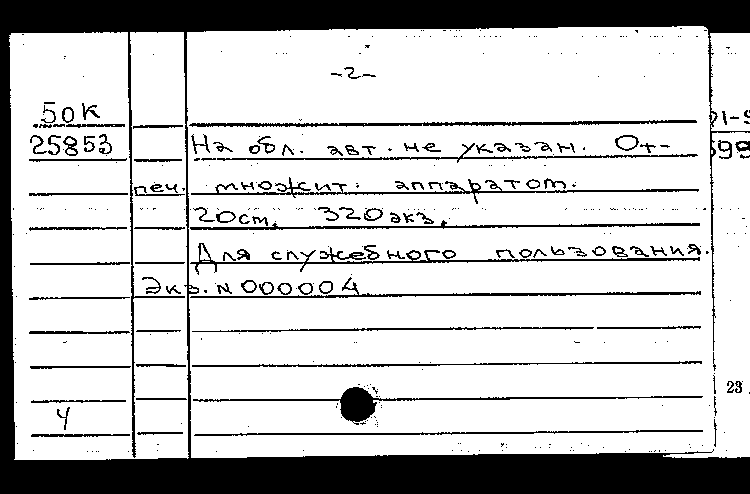 -2-
50К
25853 На обл. авт. не указан. От-
печ. множит. аппаратом.
20см. 320экз.
Для служебного пользования.
Экз. N 000004
4
23